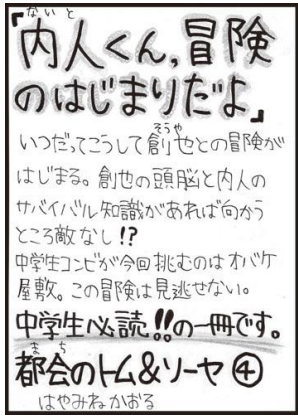 ないと
「内人くん,冒険
のはじまりだよ」
そうや
いつだってこうして創也との冒険が
はじまる。創也の頭脳と内人の
サバイバル知識があれば向かう
ところ敵なし!?
中学生コンビが今回挑むのはオバケ
屋敷。この冒険は見逃せない。
中学生必読!!の一冊です。
まち
都会のトム&ソーヤ④
はやみねかおる